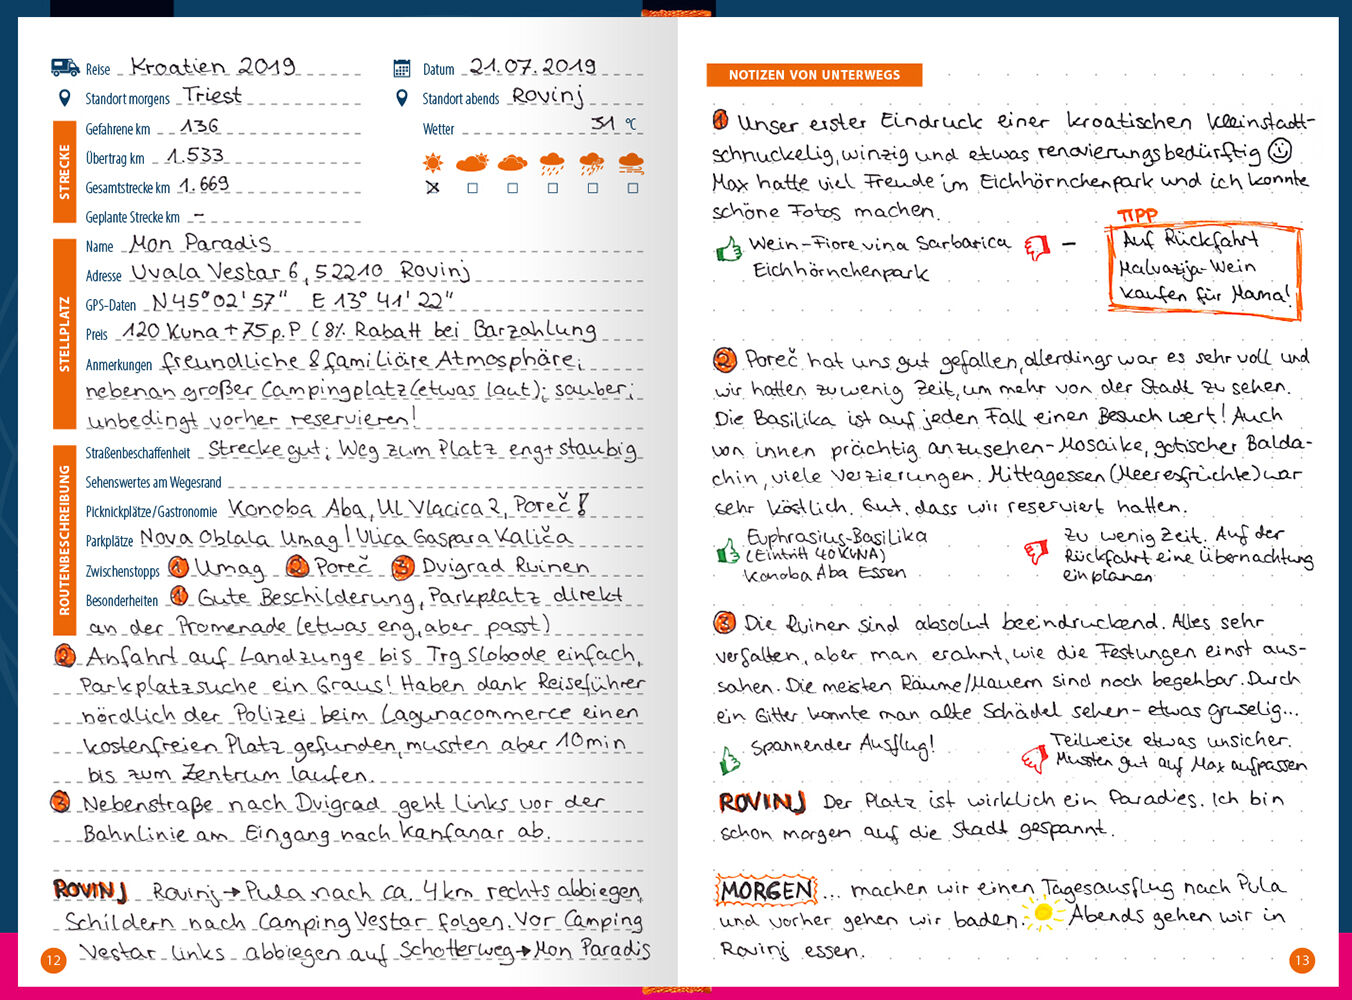 Reise Kroatien 2019
Datum 21.07.2019
Standort morgens Triest
Standort abends Rovinj
STRECKE
Gefahrene km 136
Wetter 31 °C
Übertrag km 1.533
Gesamtstrecke km 1.669
Geplante Strecke km –
STELLPLATZ
Name Mon Paradis
Adresse Uvala Vestar 6, 52210 Rovinj
GPS-Daten N 45° 02' 57" E 13° 41' 22"
Preis 120 Kuna + 75 p.P (8% Rabatt bei Barzahlung
Anmerkungen freundliche & familiäre Atmosphäre;
nebenan großer Campingplatz (etwas laut); sauber;
unbedingt vorher reservieren!
ROUTENBESCHREIBUNG
Straßenbeschaffenheit Strecke gut; Weg zum Platz eng + staubig
Sehenswertes am Wegesrand
Picknickplätze/Gastronomie Konoba Aba, Ul Vlacica 2, Poreč!
Parkplätze Nova Oblala Umag / Ulica Gaspara Kaliča
Zwischenstopps 1 Umag 2 Poreč 3 Dvigrad Ruinen
Besonderheiten 1 Gute Beschilderung, Parkplatz direkt
an der Promenade (etwas eng, aber passt)
2 Anfahrt auf Landzunge bis Trg Slobode einfach,
Parkplatzsuche ein Graus! Haben dank Reiseführer
nördlich der Polizei beim Lagunacommerce einen
kostenfreien Platz gefunden, mussten aber 10 min
bis zum Zentrum laufen.
3 Nebenstraße nach Dvigrad geht links vor der
Bahnlinie am Eingang nach Kanfanar ab.
ROVINJ Rovinj → Pula nach ca. 4 km rechts abbiegen,
Schildern nach Camping Vestar folgen. Vor Camping
Vestar links abbiegen auf Schotterweg → Mon Paradis
12
NOTIZEN VON UNTERWEGS
1 Unser erster Eindruck einer kroatischen Kleinstadt-
schnuckelig, winzig und etwas renovierungsbedürftig ☺
Max hatte viel Freude im Eichhörnchenpark und ich konnte
schöne Fotos machen.
Wein-Fiore vina Sarbarica
Eichhörnchenpark
–
TIPP
Auf Rückfahrt
Malvazija-Wein
kaufen für Mama!
2 Poreč hat uns gut gefallen, allerdings war es sehr voll und
wir hatten zu wenig Zeit, um mehr von der Stadt zu sehen.
Die Basilika ist auf jeden Fall einen Besuch wert! Auch
von innen prächtig anzusehen - Mosaike, gotischer Balda-
chin, viele Verzierungen. Mittagessen (Meeresfrüchte) war
sehr köstlich. Gut, dass wir reserviert hatten.
Euphrasius-Basilika
(Eintritt 40 KUNA)
Konoba Aba Essen
Zu wenig Zeit. Auf der
Rückfahrt eine Übernachtung
einplanen
3 Die Ruinen sind absolut beeindruckend. Alles sehr
verfallen, aber man erahnt, wie die Festungen einst aus-
sahen. Die meisten Räume/Mauern sind noch begehbar. Durch
ein Gitter konnte man alte Schädel sehen - etwas gruselig...
Spannender Ausflug!
Teilweise etwas unsicher.
Mussten gut auf Max aufpassen
ROVINJ Der Platz ist wirklich ein Paradies. Ich bin
schon morgen auf die Stadt gespannt.
MORGEN ... machen wir einen Tagesausflug nach Pula
und vorher gehen wir baden. Abends gehen wir in
Rovinj essen.
13